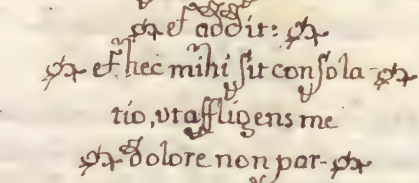 et addit:
et hec mihi sit consola-
tio, vt affligens me
dolore non par-